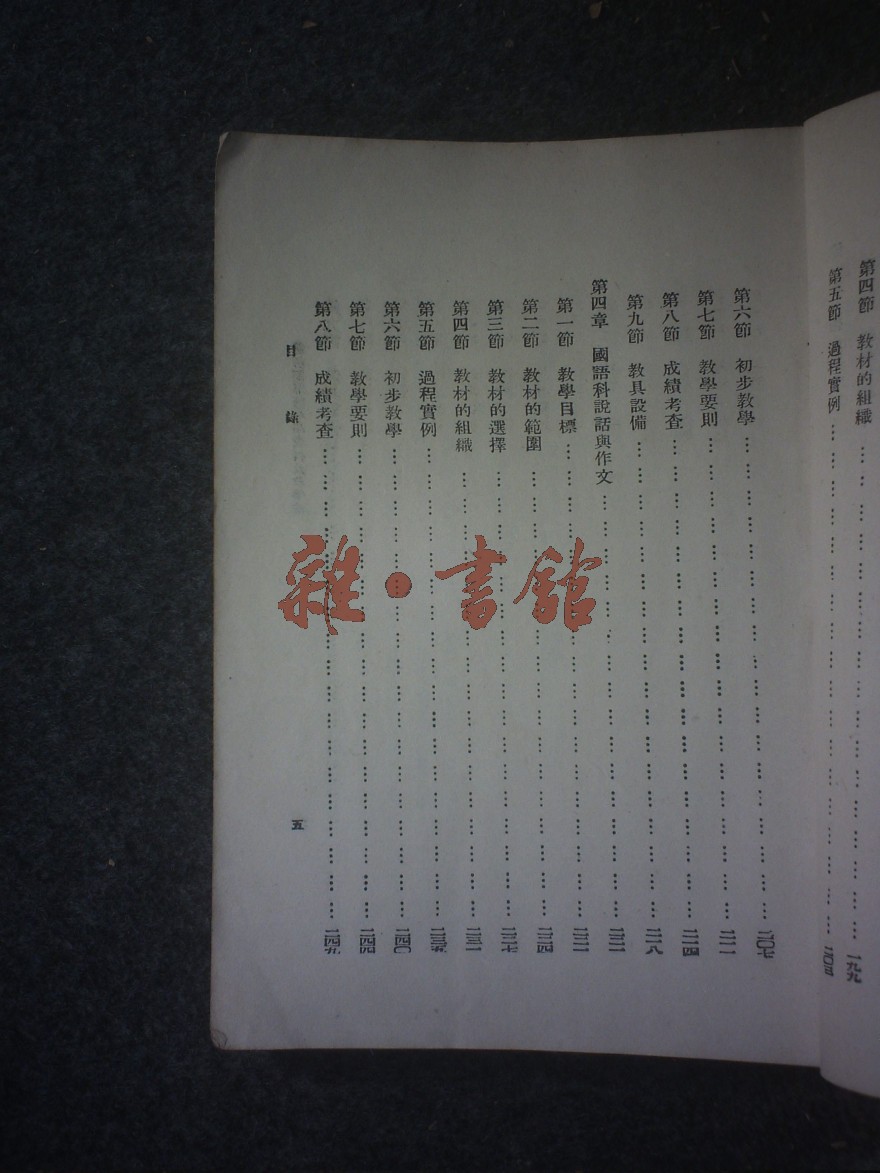 第四節 教材的組織 …………………… 一九九
第五節 過程實例 …………………… 二〇四
第六節 初步教學 …………………… 二〇七
第七節 教學要則 …………………… 二一一
第八節 成績考查 …………………… 二一四
第九節 教具設備 …………………… 二一八
第四章 國語科說話與作文 …………………… 二二一
第一節 教學目標 …………………… 二二一
第二節 教材的範圍 …………………… 二二四
第三節 教材的選擇 …………………… 二二七
第四節 教材的組織 …………………… 二三一
第五節 過程實例 …………………… 二三五
第六節 初步教學 …………………… 二四〇
第七節 教學要則 …………………… 二四四
第八節 成績考查 …………………… 二四九
目錄 五
雜·書館